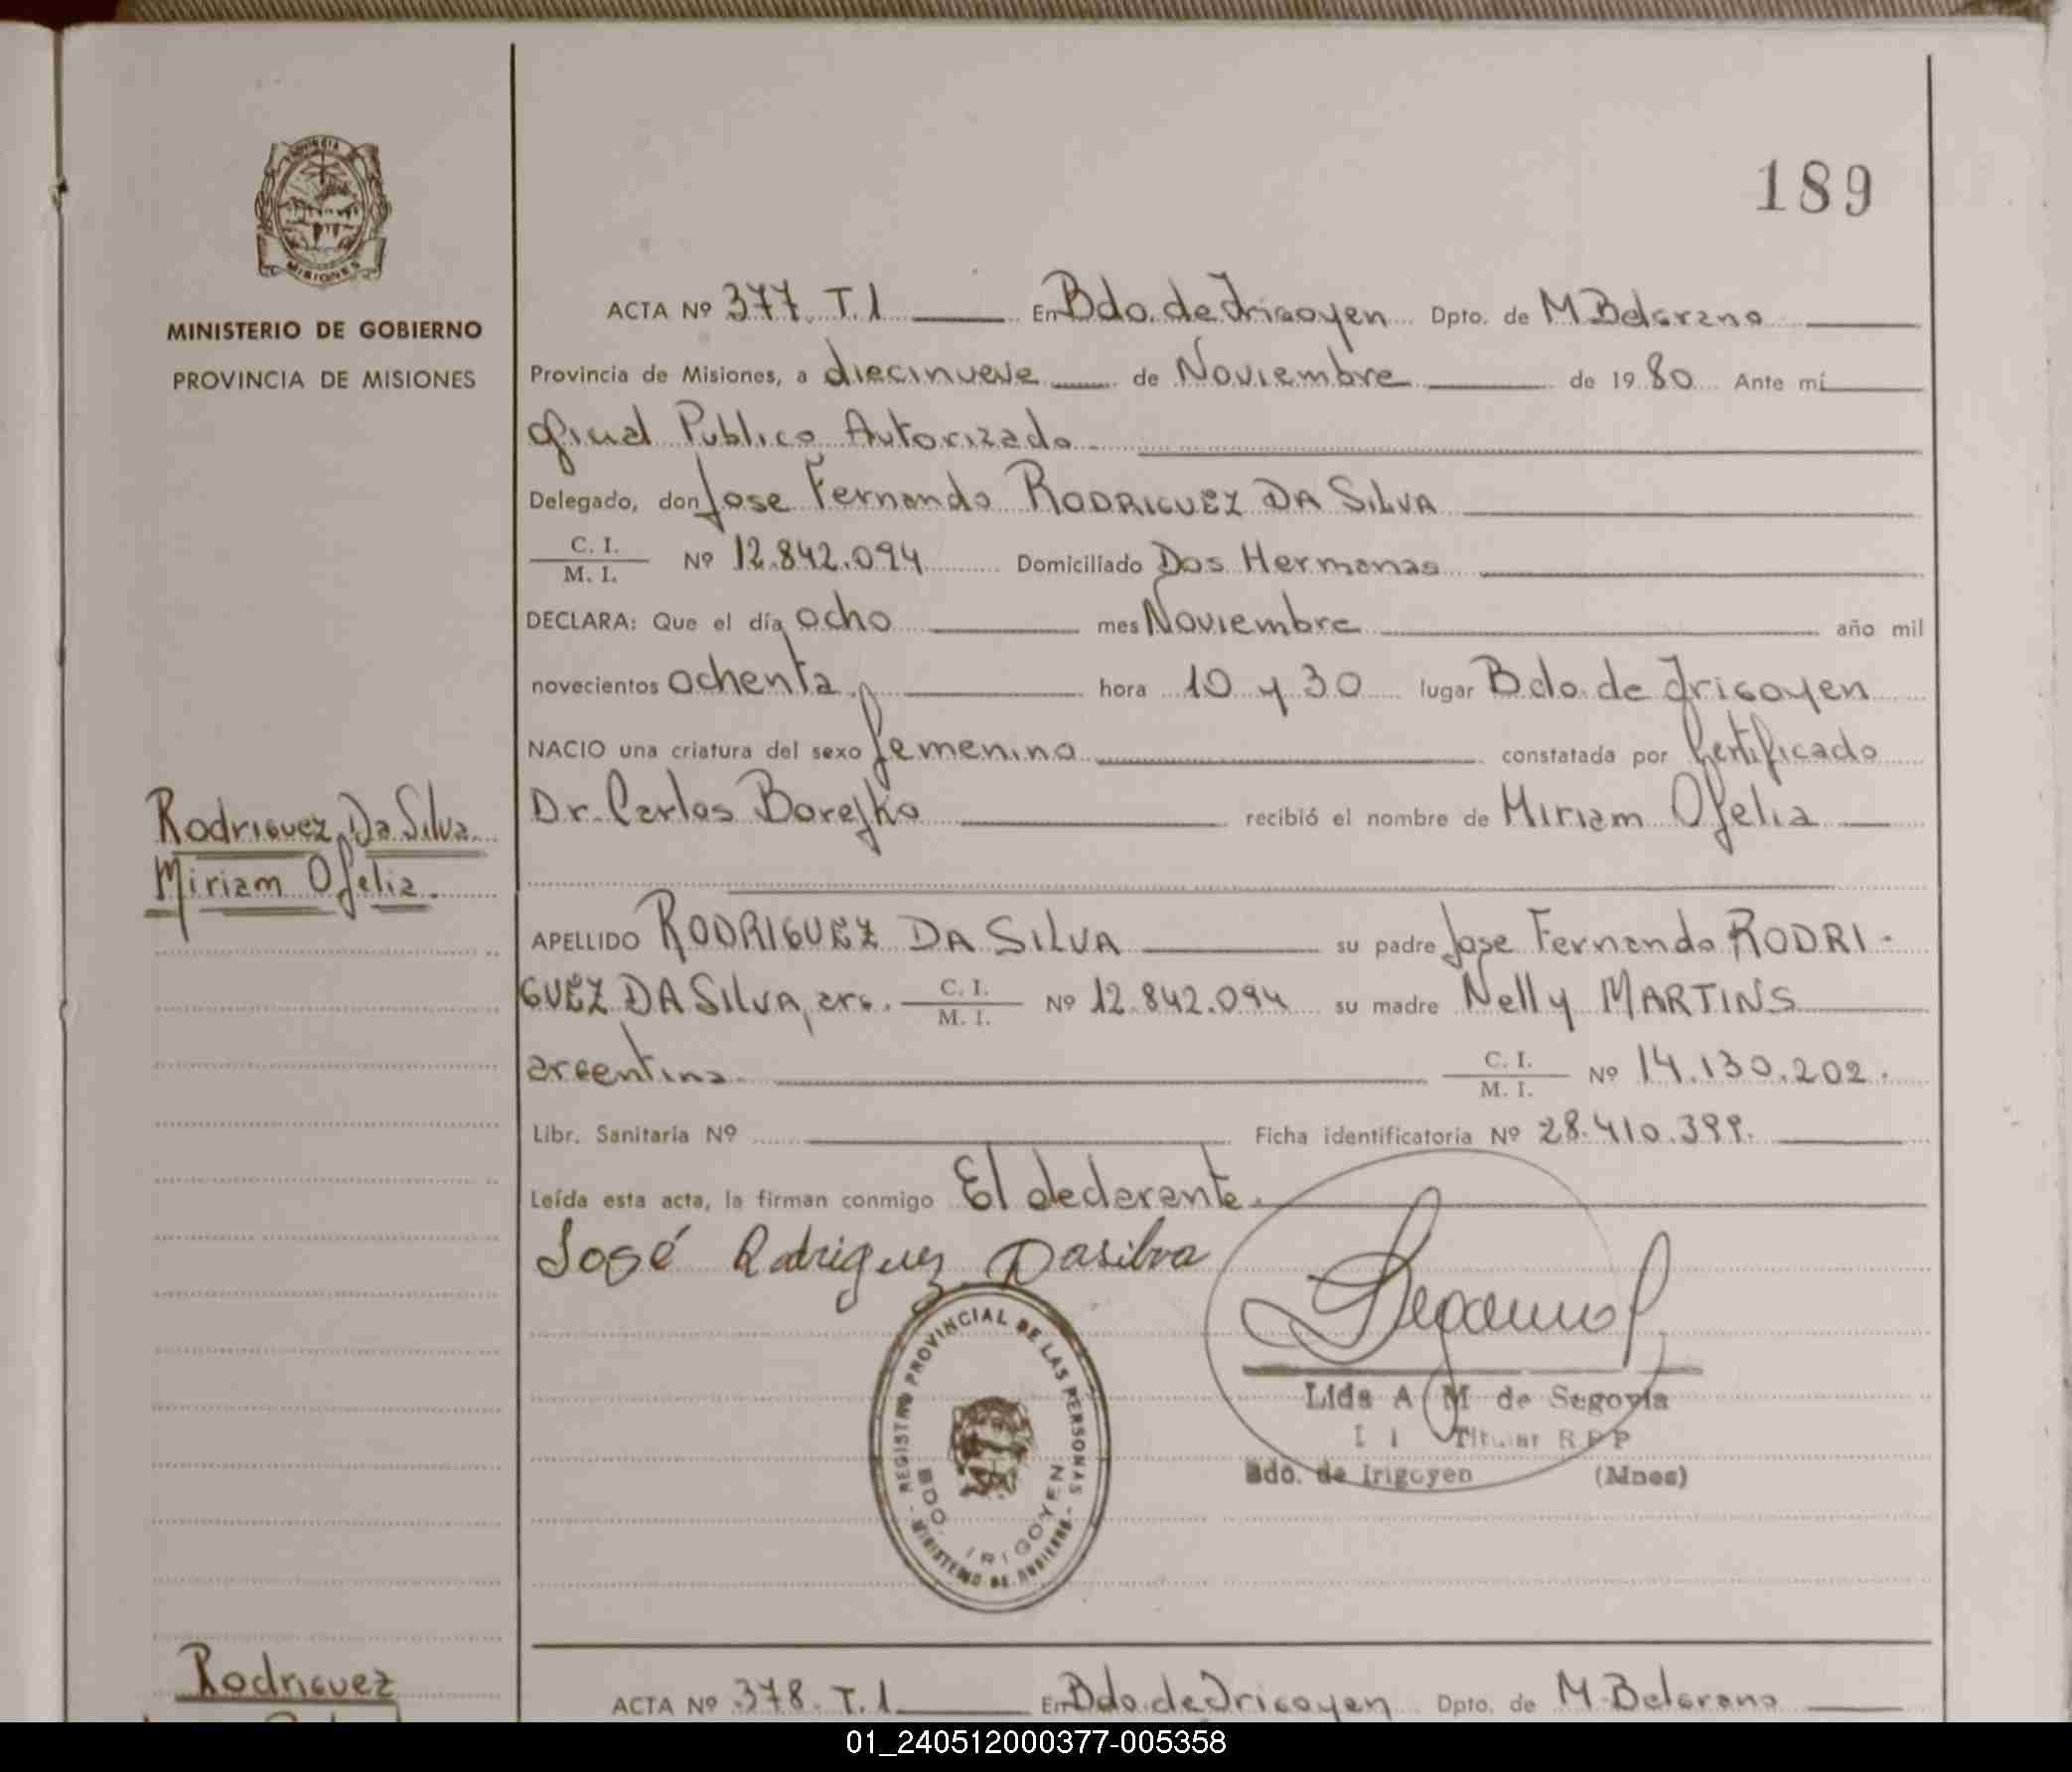 PROVINCIA DE
MISIONES
MINISTERIO DE GOBIERNO
PROVINCIA DE MISIONES
189
ACTA Nº 377 T.1 En Bdo. de Irigoyen Dpto. de M Belgrano
Provincia de Misiones, a diecinueve de Noviembre de 1980 Ante mí
Oficial Publico Autorizado
Delegado, don Jose Fernando RODRIGUEZ DA SILVA
C. I.
M. I. Nº 12.842.094 Domiciliado Dos Hermanas
DECLARA: Que el día ocho mes Noviembre año mil
novecientos ochenta hora 10 y 30 lugar Bdo. de Irigoyen
NACIO una criatura del sexo femenino constatada por Certificado
Dr. Carlos Borejko recibió el nombre de Miriam Ofelia
Rodriguez Da Silva
Miriam Ofelia.
APELLIDO RODRIGUEZ DA SILVA su padre Jose Fernando RODRI-
GUEZ DA SILVA, arg. C. I.
M. I. Nº 12.842.094 su madre Nelly MARTINS
argentina. C. I.
M. I. Nº 14.130.202.
Libr. Sanitaria Nº Ficha identificatoria Nº 28.410.399.
Leída esta acta, la firman conmigo El declarante.
José Rodriguez Dasilva
REGISTRO PROVINCIAL DE LAS PERSONAS
BDO. IRIGOYEN
- MINISTERIO DE GOBIERNO -
Lida A M de Segovia
Titular R P P
Bdo. de Irigoyen (Mnes)
Rodriguez
ACTA Nº 378. T.1 En Bdo. de Irigoyen Dpto. de M. Belgrano
01_240512000377-005358